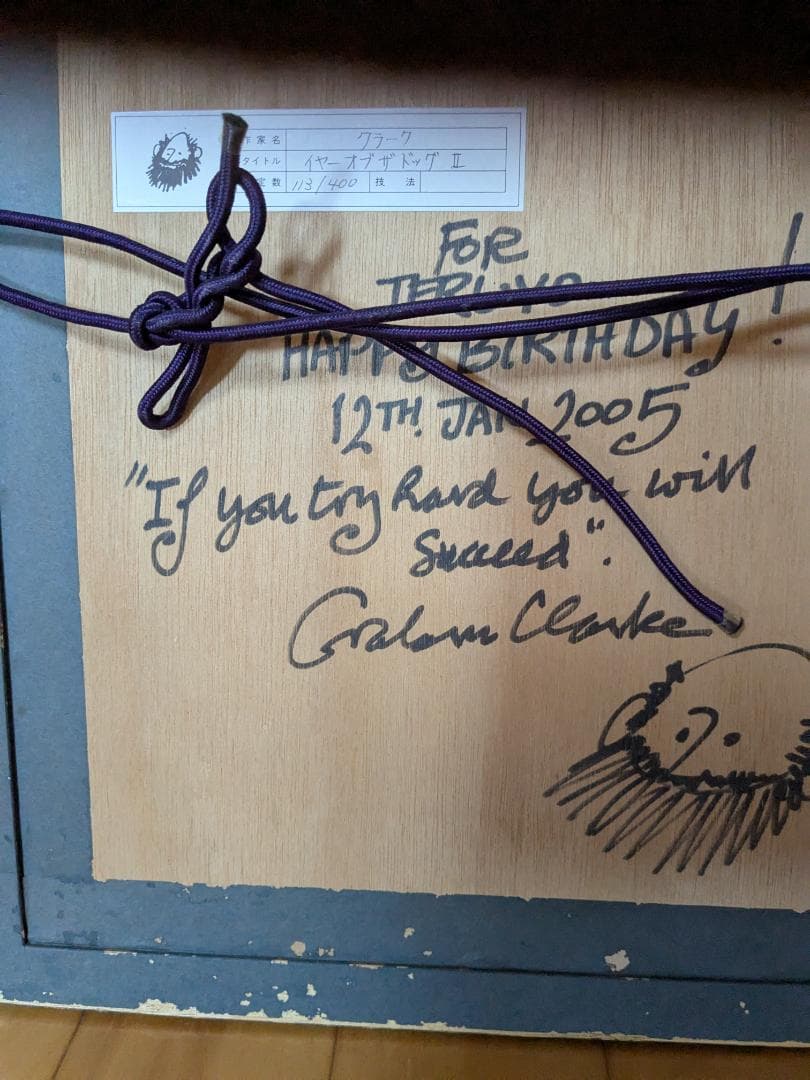 作家名 クラーク
タイトル イヤーオブザドッグ II
定数 113/400 技法
FOR
HAPPY BIRTHDAY!
12TH. JAN 2005
"If you try hard you will
succeed".
Graham Clarke